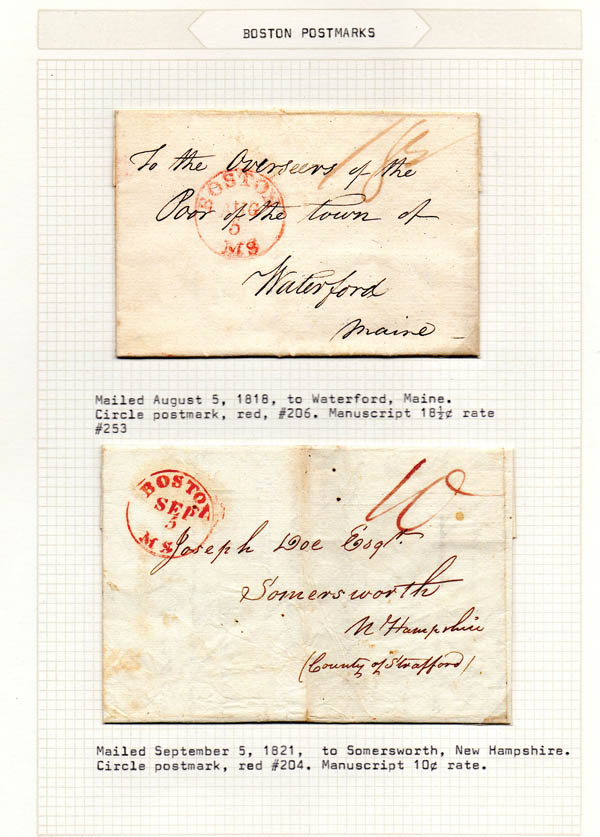 BOSTON POSTMARKS
18½
To the Overseers of the
Poor of the town of
Waterford
Maine
BOSTON
AUG
5
MS
Mailed August 5, 1818, to Waterford, Maine.
Circle postmark, red, #206. Manuscript 18½¢ rate
#253
BOSTON
SEP
5
MS
10
Joseph Doe Esqr.
Somersworth
N Hampshire
(County of Strafford)
Mailed September 5, 1821, to Somersworth, New Hampshire.
Circle postmark, red #204. Manuscript 10¢ rate.